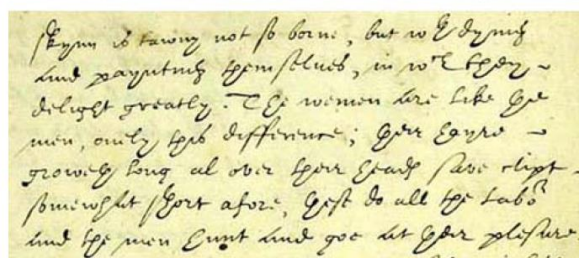 skynn is tawny not so borne, but wth dying
and paynting themselves, in wch they
delight greatly. The women are like the
men, onely this difference; their hayre
groweth long al over their heads save clipt
somewhat short afore, these do all the labor
and the men hunt and goe at their plesure.